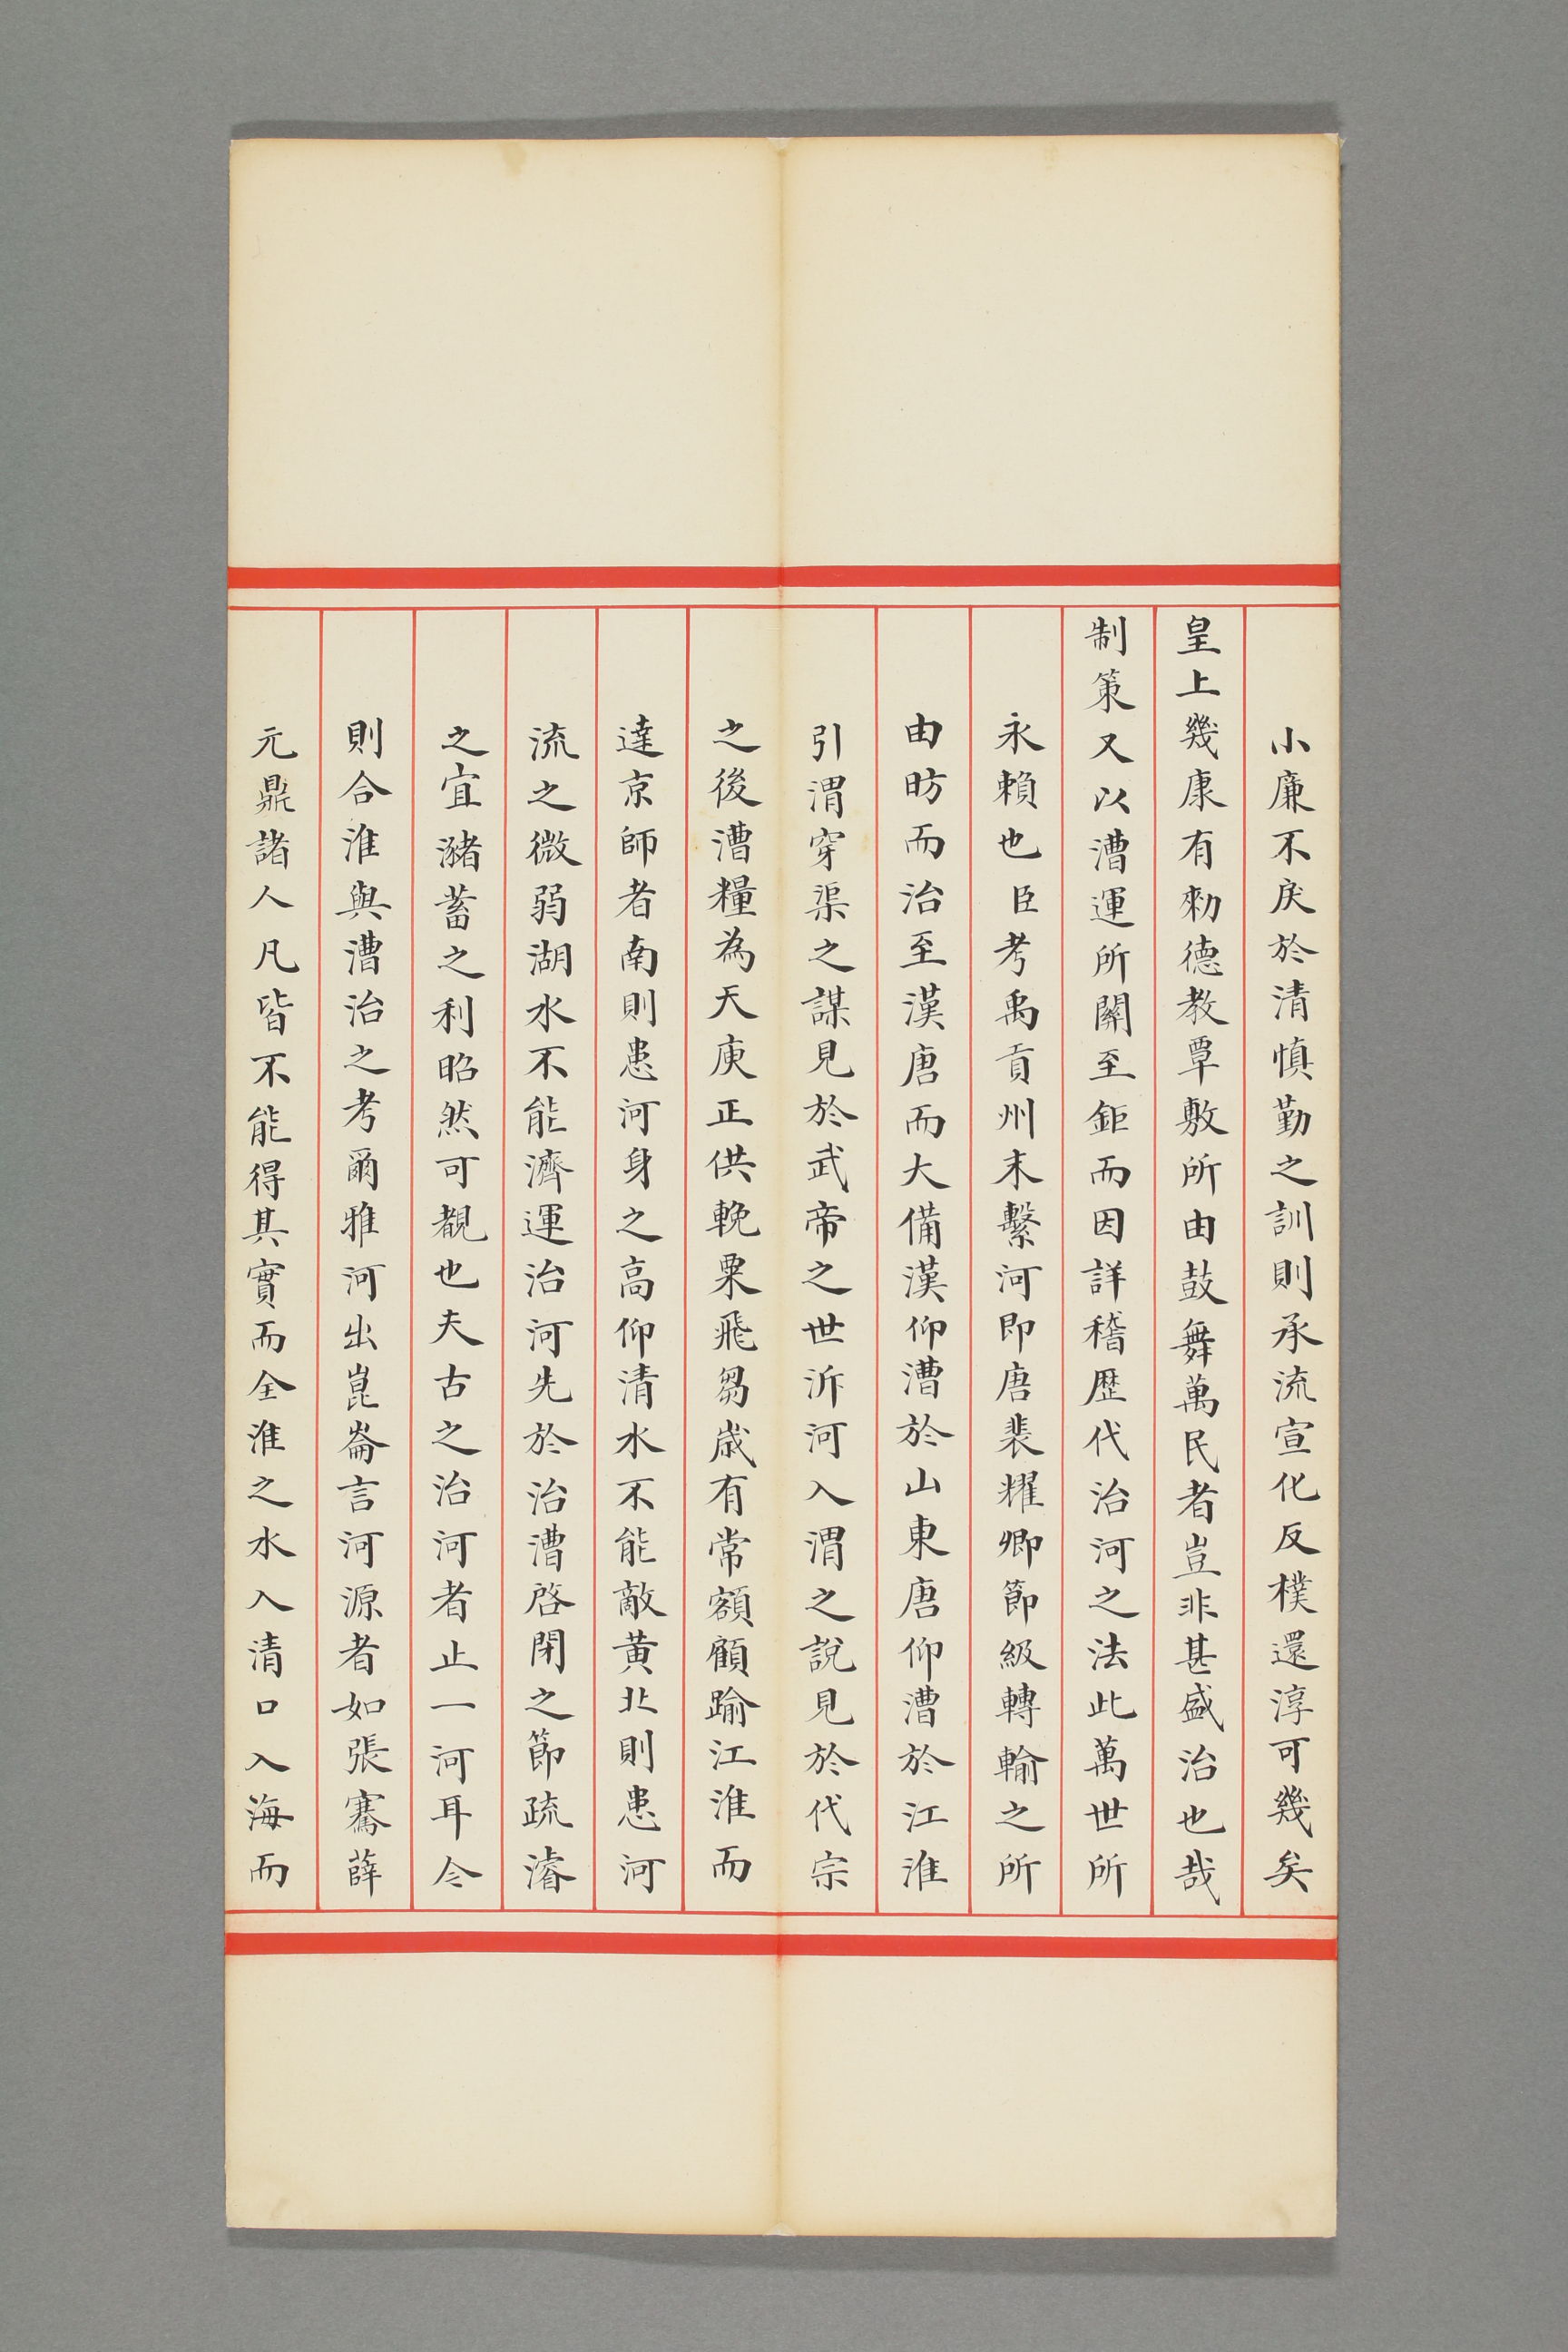 小廉不戾於清慎勤之訓則承流宣化反樸還淳可幾矣
皇上幾康有勑德教覃敷所由鼓舞萬民者豈非甚盛治也哉
制策又以漕運所關至鉅而因詳稽歷代治河之法此萬世所
永賴也臣考禹貢州末繫河即唐裴耀卿節級轉輸之所
由昉而治至漢唐而大備漢仰漕於山東唐仰漕於江淮
引渭穿渠之謀見於武帝之世泝河入渭之說見於代宗
之後漕糧為天庾正供輓粟飛芻歲有常額顧踰江淮而
達京師者南則患河身之高仰清水不能敵黃北則患河
流之微弱湖水不能濟運治河先於治漕啓閉之節疏濬
之宜瀦蓄之利昭然可覩也夫古之治河者止一河耳今
則合淮與漕治之考爾雅河出崑崙言河源者如張騫薛
元鼎諸人凡皆不能得其實而全淮之水入清口入海而